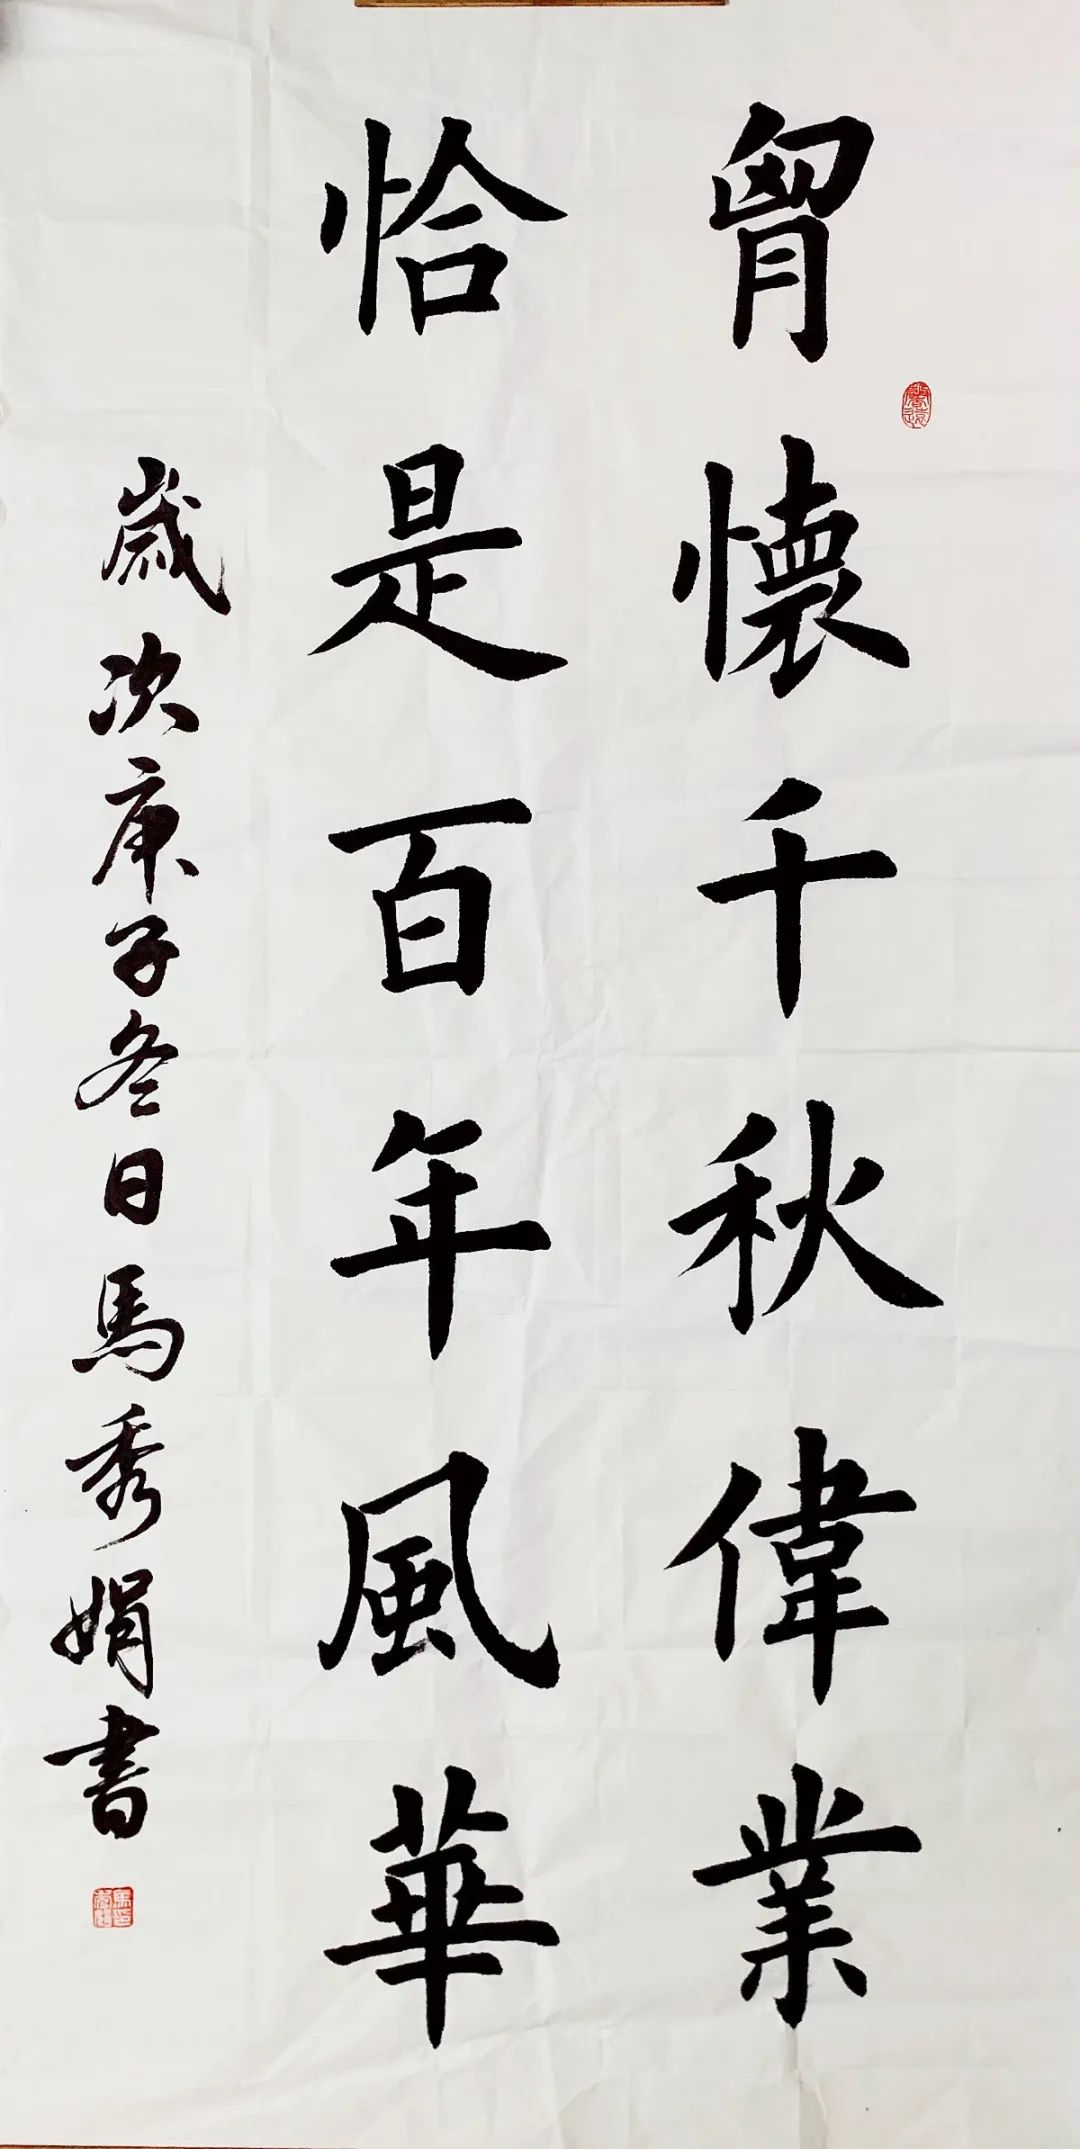 胷懷千秋偉業
恰是百年風華
歲次庚子冬日馬秀娟書